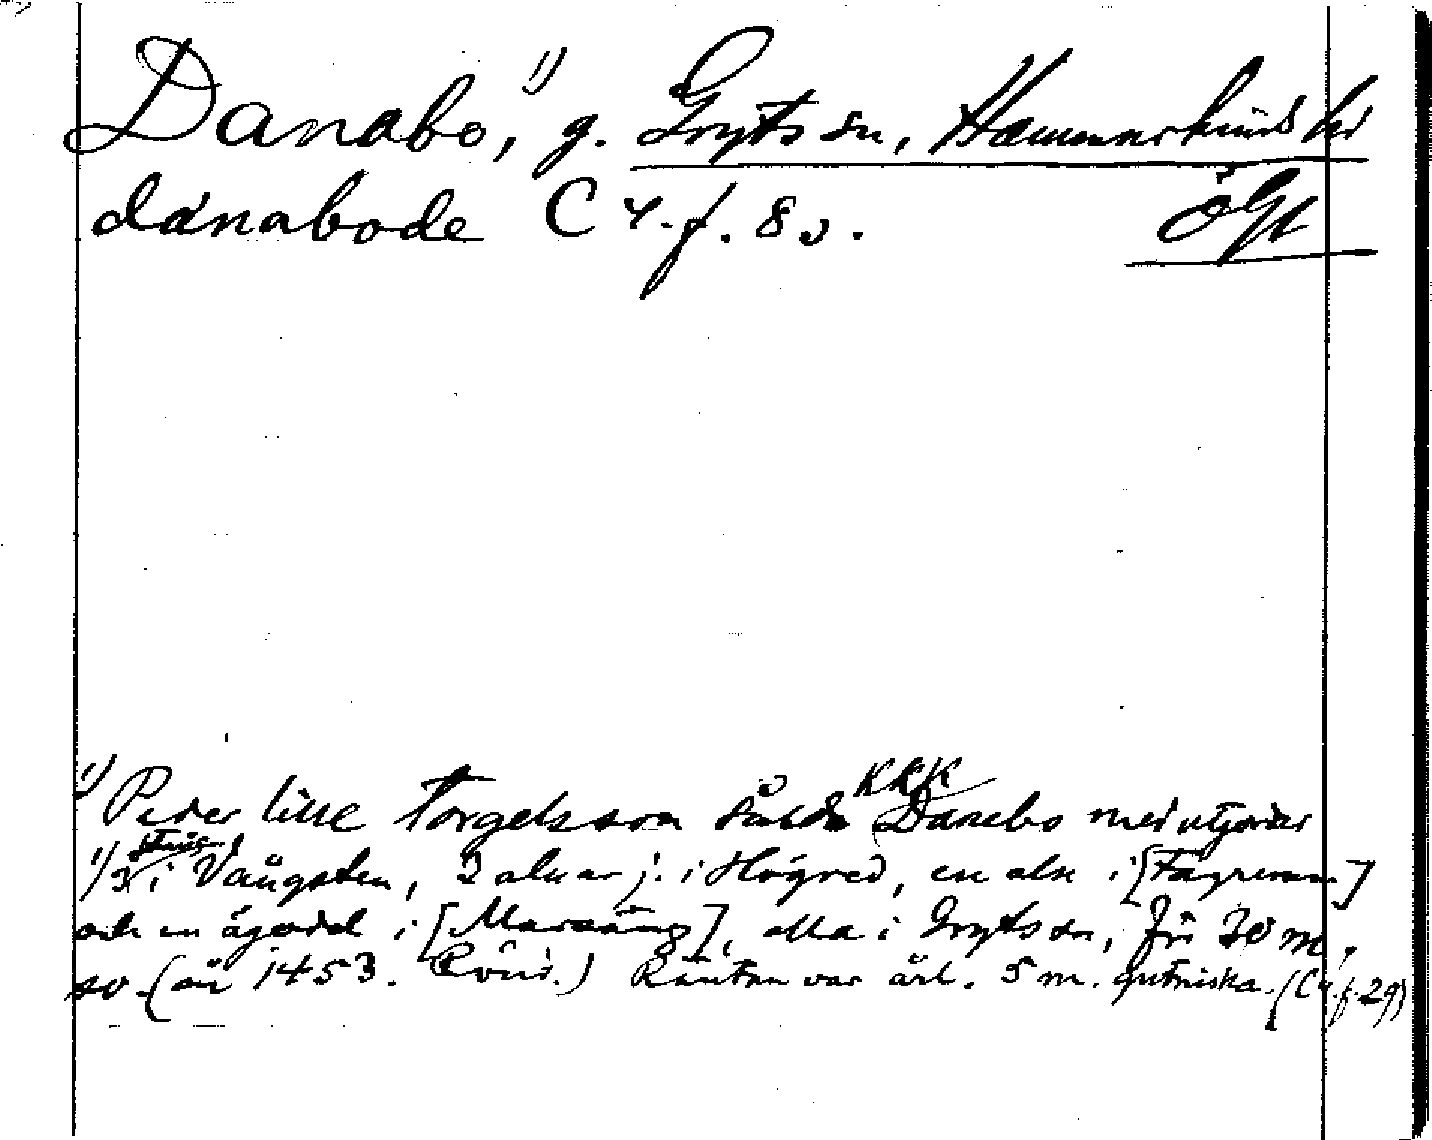 Danabo,¹⁾ g. Gryts sn, Hammarkinds hd
danabode C 4. f. 8 v. ÖGL
¹⁾ Peder lille Torgelsson sålde KRK Danebo med utjordar
1/3 i Vångsten, 2 alnar j. i Högred, en aln i [Fågremm]
och en ägodel i [Marsäng], alla i Gryts sn, för 30 m.
sv. (år 1453. Räntan var årl. 5 m. gutniska. (C 4. f. 29)